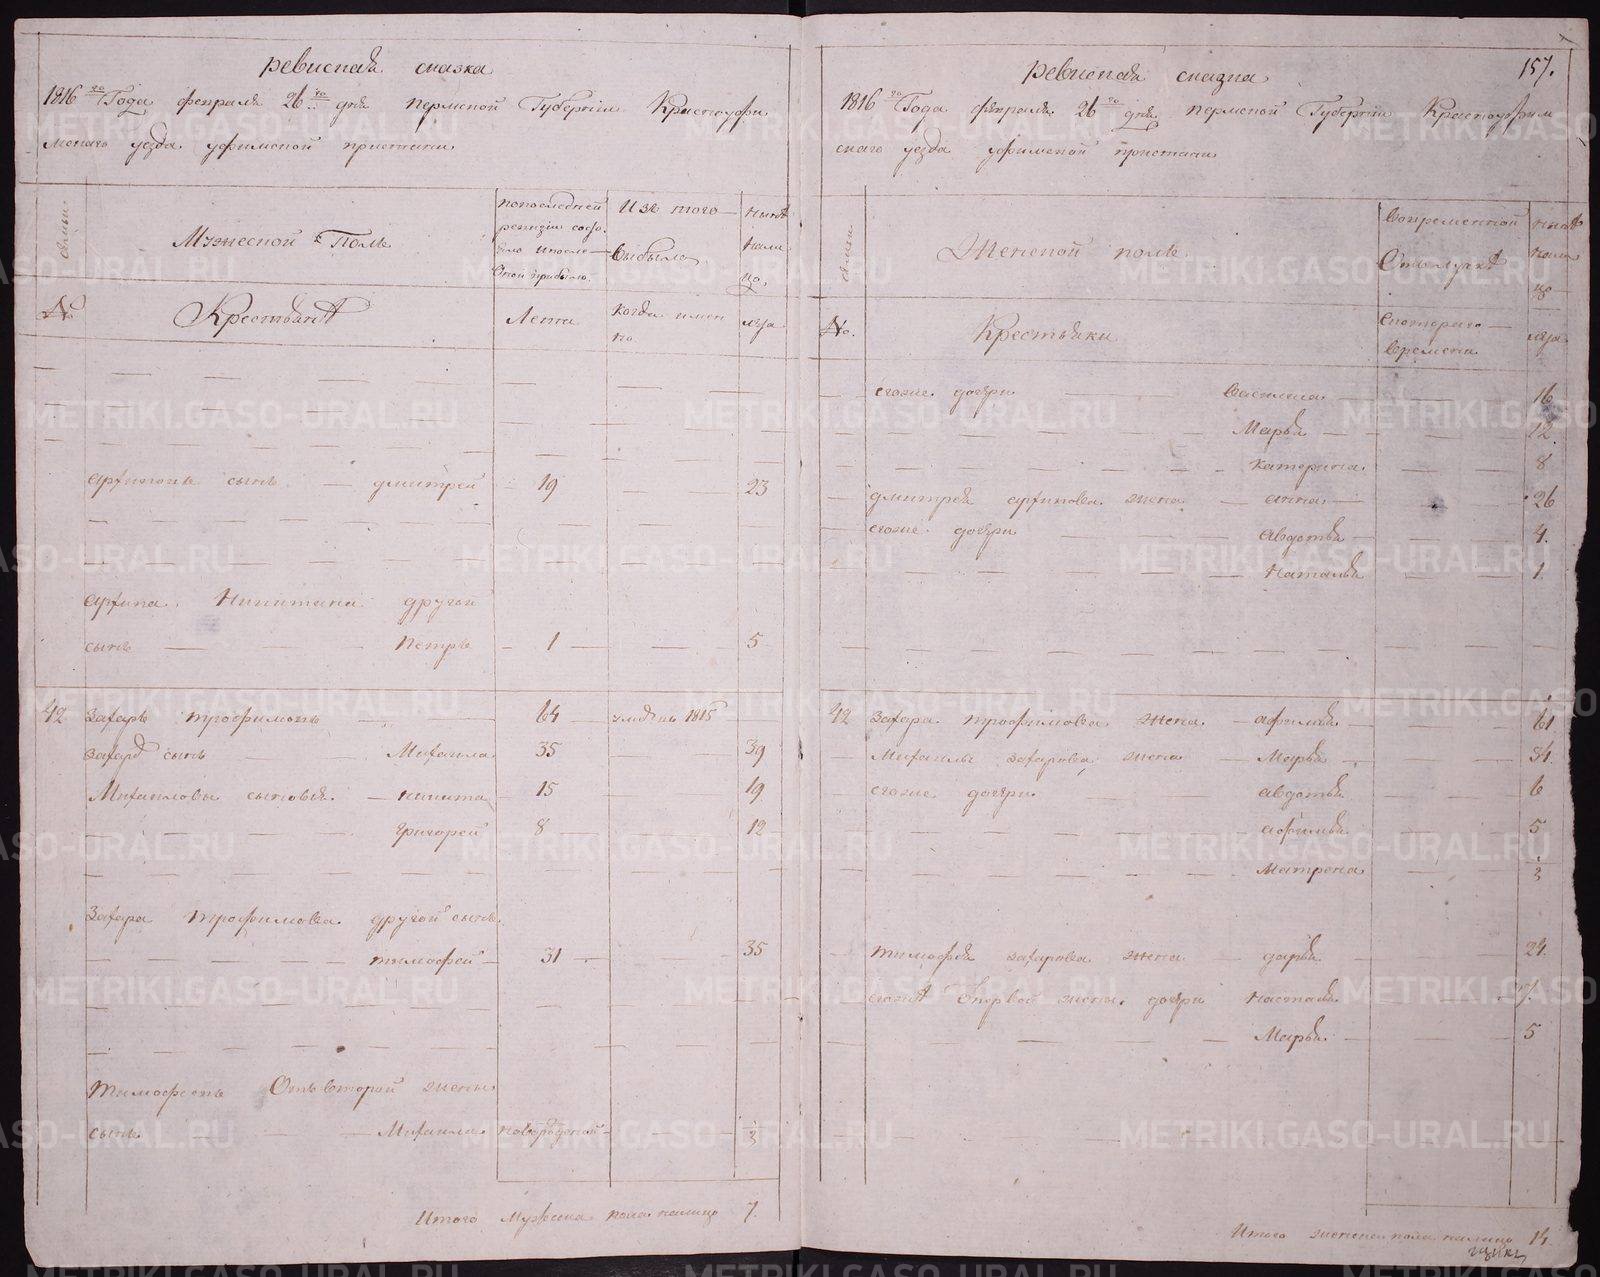 ревиская сказка
1816 го Года февраля 26 го дня пермской Губернии Красноуфи
мскаго уезда уфимской пристани
Мужеской Полъ
попоследней
ревизии состо
яло ипосле
оной прибыло
Изъ того
выбыло
нынѣ
нали
цо
№
Крестьянѣ
Лета
когда имен
но
лѣта
сынъ дмитрей 19 23
Никитина другой
сынъ Петръ 1 5
42 Захаръ трофимовъ 64 умре въ 1815
Захара сынъ Михаила 35 39
Михаиловы сыновья никита 15 19
григорей 8 12
Захара трофимова другой сынъ
тимофей 31 35
Тимофеевъ Отъ второй жены
сынъ Михаила новорожденой 3
Итого Мужеска пола налицо 7
157.
ревиская сказка
1816 го Года февраля 26 го дня пермской Губернии Красноуфим
скаго уезда уфимской пристани
Женской полъ
вовременной
Отлучкѣ
нынѣ
нали
цо
№.
Крестьянки
скотораго
времени
лѣта
егоже дочери Василиса 16
Марья 12
катерина 8
дмитрея жена анна 26
егоже дочери авдотья 4.
наталья 1
42 Захара трофимова жена афимья 61
Михаилы захарова жена Марья 34
егоже дочери авдотья 6
афимья 5
Матрена 3
тимофея захарова жена дарья 24.
егожѣ Отпервой жены дочери настасья
Марья 5
Итого женска пола налицо 14